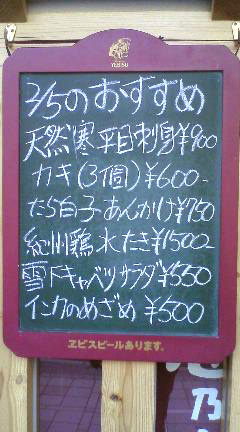 YEBISU
2/5のおすすめ
天然寒平目刺身¥900
カキ(3個)¥600-
たら白子あんかけ¥750
紀州鶏水たき¥1500-
雪下キャベツサラダ¥550
インカのめざめ¥500
ヱビスビールあります。
乃